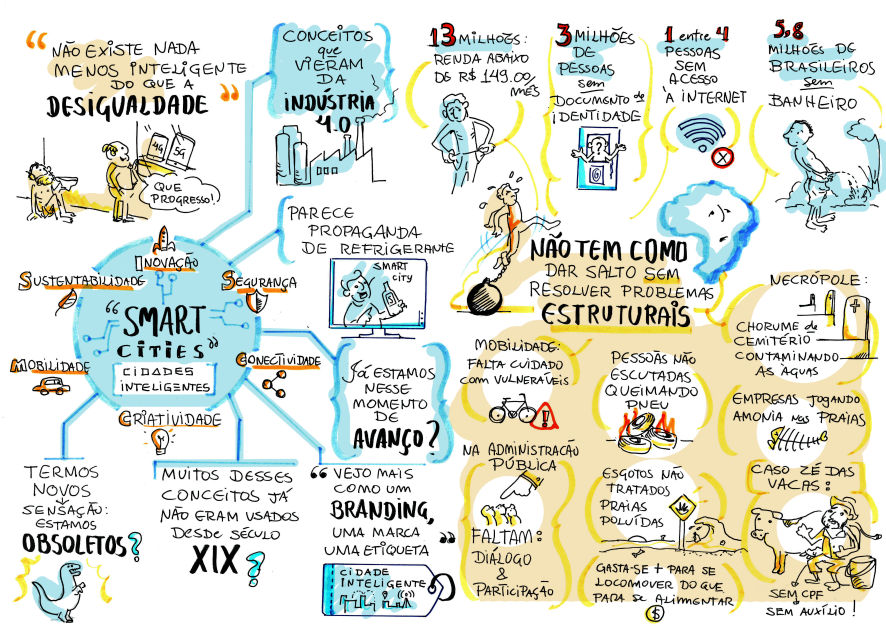 “NÃO EXISTE NADA
MENOS INTELIGENTE
DO QUE A
DESIGUALDADE”
4G
5G
QUE
PROGRESSO!
CONCEITOS
que
VIERAM
DA
INDÚSTRIA
4.0
PARECE
PROPAGANDA
DE REFRIGERANTE
SMART
CITY
INOVAÇÃO
SUSTENTABILIDADE
SEGURANÇA
“SMART
CITIES”
CIDADES
INTELIGENTES
MOBILIDADE
CONECTIVIDADE
CRIATIVIDADE
JÁ ESTAMOS
NESSE
MOMENTO
DE
AVANÇO?
TERMOS
NOVOS
SENSAÇÃO:
ESTAMOS
OBSOLETOS?
MUITOS DESSES
CONCEITOS JÁ
NÃO ERAM USADOS
DESDE SÉCULO
XIX?
“VEJO MAIS
COMO UM
BRANDING,
UMA MARCA
UMA ETIQUETA”
CIDADE
INTELIGENTE
13 MILHÕES:
RENDA ABAIXO
DE R$ 149.00/MÊS
3 MILHÕES
DE
PESSOAS
sem
DOCUMENTO de
IDENTIDADE
?
1 entre 4
PESSOAS
SEM
ACESSO
À INTERNET
5,8
MILHÕES DE
BRASILEIROS
sem
BANHEIRO
NÃO TEM COMO
DAR SALTO SEM
RESOLVER PROBLEMAS
ESTRUTURAIS
MOBILIDADE:
FALTA CUIDADO
com VULNERÁVEIS
!
PESSOAS NÃO
ESCUTADAS
QUEIMANDO
PNEU
NECRÓPOLE:
CHORUME de
CEMITÉRIO
CONTAMINANDO
AS ÁGUAS
EMPRESAS JOGANDO
AMONIA nas PRAIAS
NA ADMINISTRAÇÃO
PÚBLICA
FALTAM:
DIÁLOGO
&
PARTICIPAÇÃO
ESGOTOS NÃO
TRATADOS
PRAIAS
POLUÍDAS
GASTA-SE + PARA SE
LOCOMOVER DO QUE
PARA SE ALIMENTAR
$
CASO ZÉ DAS
VACAS:
SEM CPF
SEM AUXÍLIO!